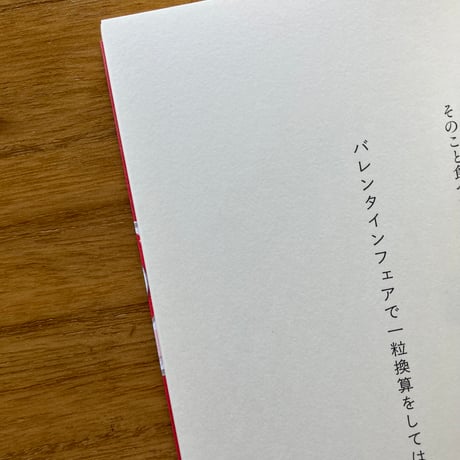 そのこと
バレンタインフェアで一粒換算をしては